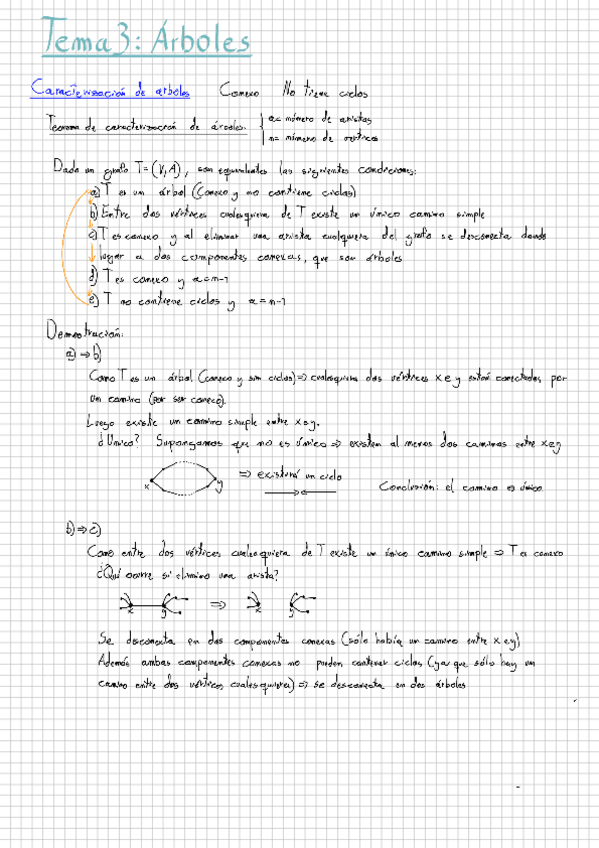 Tema 3: Árboles
Caracterización de árboles   Conexo   No tiene ciclos
Teorema de caracterización de árboles:   a = número de aristas
n = número de vértices
Dado un grafo T=(V,A), son equivalentes las siguientes condiciones:
a) T es un árbol (conexo y no contiene ciclos)
b) Entre dos vértices cualesquiera de T existe un único camino simple
c) T es conexo y al eliminar una arista cualquiera del grafo se desconecta dando
lugar a dos componentes conexas, que son árboles
d) T es conexo y a=n-1
e) T no contiene ciclos y a=n-1
Demostración:
a) ⇒ b)
Como T es un árbol (conexo y sin ciclos) ⇒ cualesquiera dos vértices x e y están conectados por
un camino (por ser conexo).
Luego existe un camino simple entre x e y.
¿Único? Supongamos que no es único ⇒ existen al menos dos caminos entre x e y
x   y   ⇒ existirá un ciclo
Conclusión: el camino es único
b) ⇒ c)
Como entre dos vértices cualesquiera de T existe un único camino simple ⇒ T es conexo
¿Qué ocurre si elimino una arista?
x   y   ⇒   x   y
Se desconecta en dos componentes conexas (sólo había un camino entre x e y)
Además ambas componentes conexas no pueden contener ciclos (ya que sólo hay un
camino entre dos vértices cualesquiera) ⇒ se desconecta en dos árboles